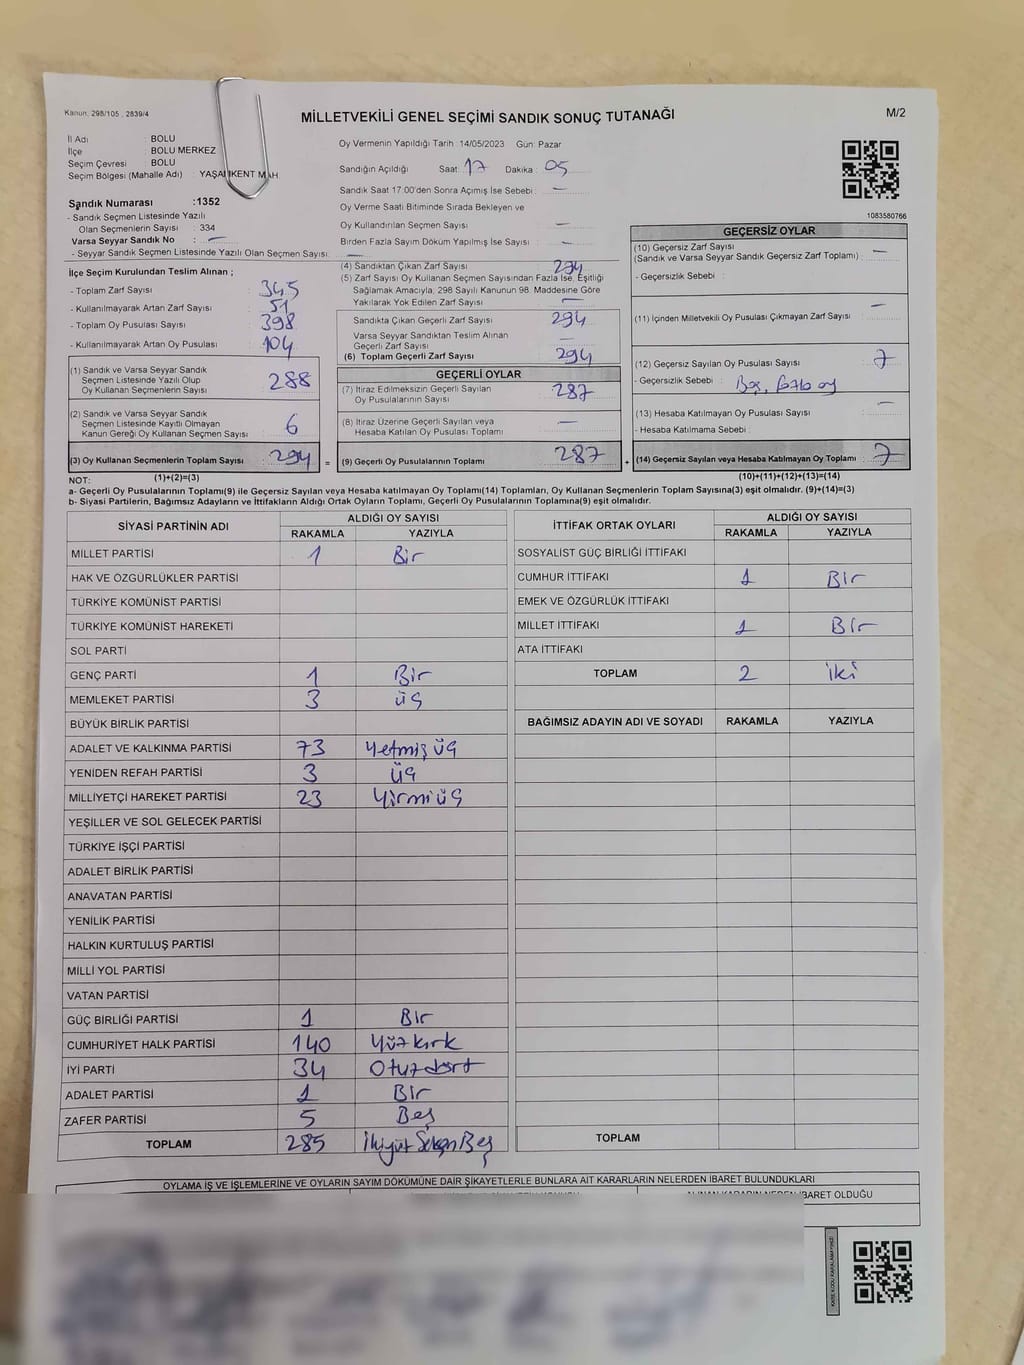 Kanun: 298/105 , 2839/4
MİLLETVEKİLİ GENEL SEÇİMİ SANDIK SONUÇ TUTANAĞI
M/2
İl Adı : BOLU
İlçe : BOLU MERKEZ
Seçim Çevresi : BOLU
Seçim Bölgesi (Mahalle Adı) : YAŞAMKENT MAH
Sandık Numarası :1352
- Sandık Seçmen Listesinde Yazılı
Olan Seçmenlerin Sayısı : 334
Varsa Seyyar Sandık No : —
- Seyyar Sandık Seçmen Listesinde Yazılı Olan Seçmen Sayısı: —
Oy Vermenin Yapıldığı Tarih :14/05/2023 Gün: Pazar
Sandığın Açıldığı Saat: 17 Dakika : 05
Sandık Saat 17:00'den Sonra Açımış İse Sebebi : —
Oy Verme Saati Bitiminde Sırada Bekleyen ve
Oy Kullandırılan Seçmen Sayısı : —
Birden Fazla Sayım Döküm Yapılmış İse Sayısı : —
1083580766
İlçe Seçim Kurulundan Teslim Alınan ;
- Toplam Zarf Sayısı : 345
- Kullanılmayarak Artan Zarf Sayısı : 51
- Toplam Oy Pusulası Sayısı : 398
- Kullanılmayarak Artan Oy Pusulası : 104
(1) Sandık ve Varsa Seyyar Sandık
Seçmen Listesinde Yazılı Olup
Oy Kullanan Seçmenlerin Sayısı : 288
(2) Sandık ve Varsa Seyyar Sandık
Seçmen Listesinde Kayıtlı Olmayan
Kanun Gereği Oy Kullanan Seçmen Sayısı : 6
(3) Oy Kullanan Seçmenlerin Toplam Sayısı : 294 =
(4) Sandıktan Çıkan Zarf Sayısı : 294
(5) Zarf Sayısı Oy Kullanan Seçmen Sayısından Fazla İse, Eşitliği
Sağlamak Amacıyla, 298 Sayılı Kanunun 98. Maddesine Göre
Yakılarak Yok Edilen Zarf Sayısı : —
Sandıkta Çıkan Geçerli Zarf Sayısı : 294
Varsa Seyyar Sandıktan Teslim Alınan
Geçerli Zarf Sayısı : —
(6) Toplam Geçerli Zarf Sayısı : 294
GEÇERLİ OYLAR
(7) İtiraz Edilmeksizin Geçerli Sayılan
Oy Pusulalarının Sayısı : 287
(8) İtiraz Üzerine Geçerli Sayılan veya
Hesaba Katılan Oy Pusulası Toplamı : —
(9) Geçerli Oy Pusulalarının Toplamı : 287 +
GEÇERSİZ OYLAR
(10) Geçersiz Zarf Sayısı
(Sandık ve Varsa Seyyar Sandık Geçersiz Zarf Toplamı) : —
- Geçersizlik Sebebi :
(11) İçinden Milletvekili Oy Pusulası Çıkmayan Zarf Sayısı : —
(12) Geçersiz Sayılan Oy Pusulası Sayısı : 7
- Geçersizlik Sebebi : Boş, fazla oy
(13) Hesaba Katılmayan Oy Pusulası Sayısı : —
- Hesaba Katılmama Sebebi :
(14) Geçersiz Sayılan veya Hesaba Katılmayan Oy Toplamı : 7
NOT: (1)+(2)=(3) (10)+(11)+(12)+(13)=(14)
a- Geçerli Oy Pusulalarının Toplamı(9) ile Geçersiz Sayılan veya Hesaba katılmayan Oy Toplamı(14) Toplamları, Oy Kullanan Seçmenlerin Toplam Sayısına(3) eşit olmalıdır. (9)+(14)=(3)
b- Siyasi Partilerin, Bağımsız Adayların ve İttifakların Aldığı Ortak Oyların Toplamı, Geçerli Oy Pusulalarının Toplamına(9) eşit olmalıdır.
SİYASİ PARTİNİN ADI ALDIĞI OY SAYISI
RAKAMLA YAZIYLA
MİLLET PARTİSİ 1 Bir
HAK VE ÖZGÜRLÜKLER PARTİSİ
TÜRKİYE KOMÜNİST PARTİSİ
TÜRKİYE KOMÜNİST HAREKETİ
SOL PARTİ
GENÇ PARTİ 1 Bir
MEMLEKET PARTİSİ 3 üç
BÜYÜK BİRLİK PARTİSİ
ADALET VE KALKINMA PARTİSİ 73 Yetmiş üç
YENİDEN REFAH PARTİSİ 3 üç
MİLLİYETÇİ HAREKET PARTİSİ 23 Yirmi üç
YEŞİLLER VE SOL GELECEK PARTİSİ
TÜRKİYE İŞÇİ PARTİSİ
ADALET BİRLİK PARTİSİ
ANAVATAN PARTİSİ
YENİLİK PARTİSİ
HALKIN KURTULUŞ PARTİSİ
MİLLİ YOL PARTİSİ
VATAN PARTİSİ
GÜÇ BİRLİĞİ PARTİSİ 1 Bir
CUMHURİYET HALK PARTİSİ 140 Yüz kırk
İYİ PARTİ 34 Otuz dört
ADALET PARTİSİ 1 Bir
ZAFER PARTİSİ 5 Beş
TOPLAM 285 İkiyüz Seksen Beş
İTTİFAK ORTAK OYLARI ALDIĞI OY SAYISI
RAKAMLA YAZIYLA
SOSYALİST GÜÇ BİRLİĞİ İTTİFAKI
CUMHUR İTTİFAKI 1 Bir
EMEK VE ÖZGÜRLÜK İTTİFAKI
MİLLET İTTİFAKI 1 Bir
ATA İTTİFAKI
TOPLAM 2 iki
BAĞIMSIZ ADAYIN ADI VE SOYADI RAKAMLA YAZIYLA
TOPLAM
OYLAMA İŞ VE İŞLEMLERİNE VE OYLARIN SAYIM DÖKÜMÜNE DAİR ŞİKAYETLERLE BUNLARA AİT KARARLARIN NELERDEN İBARET BULUNDUKLARI
ALINAN KARARIN NEDEN İBARET OLDUĞU